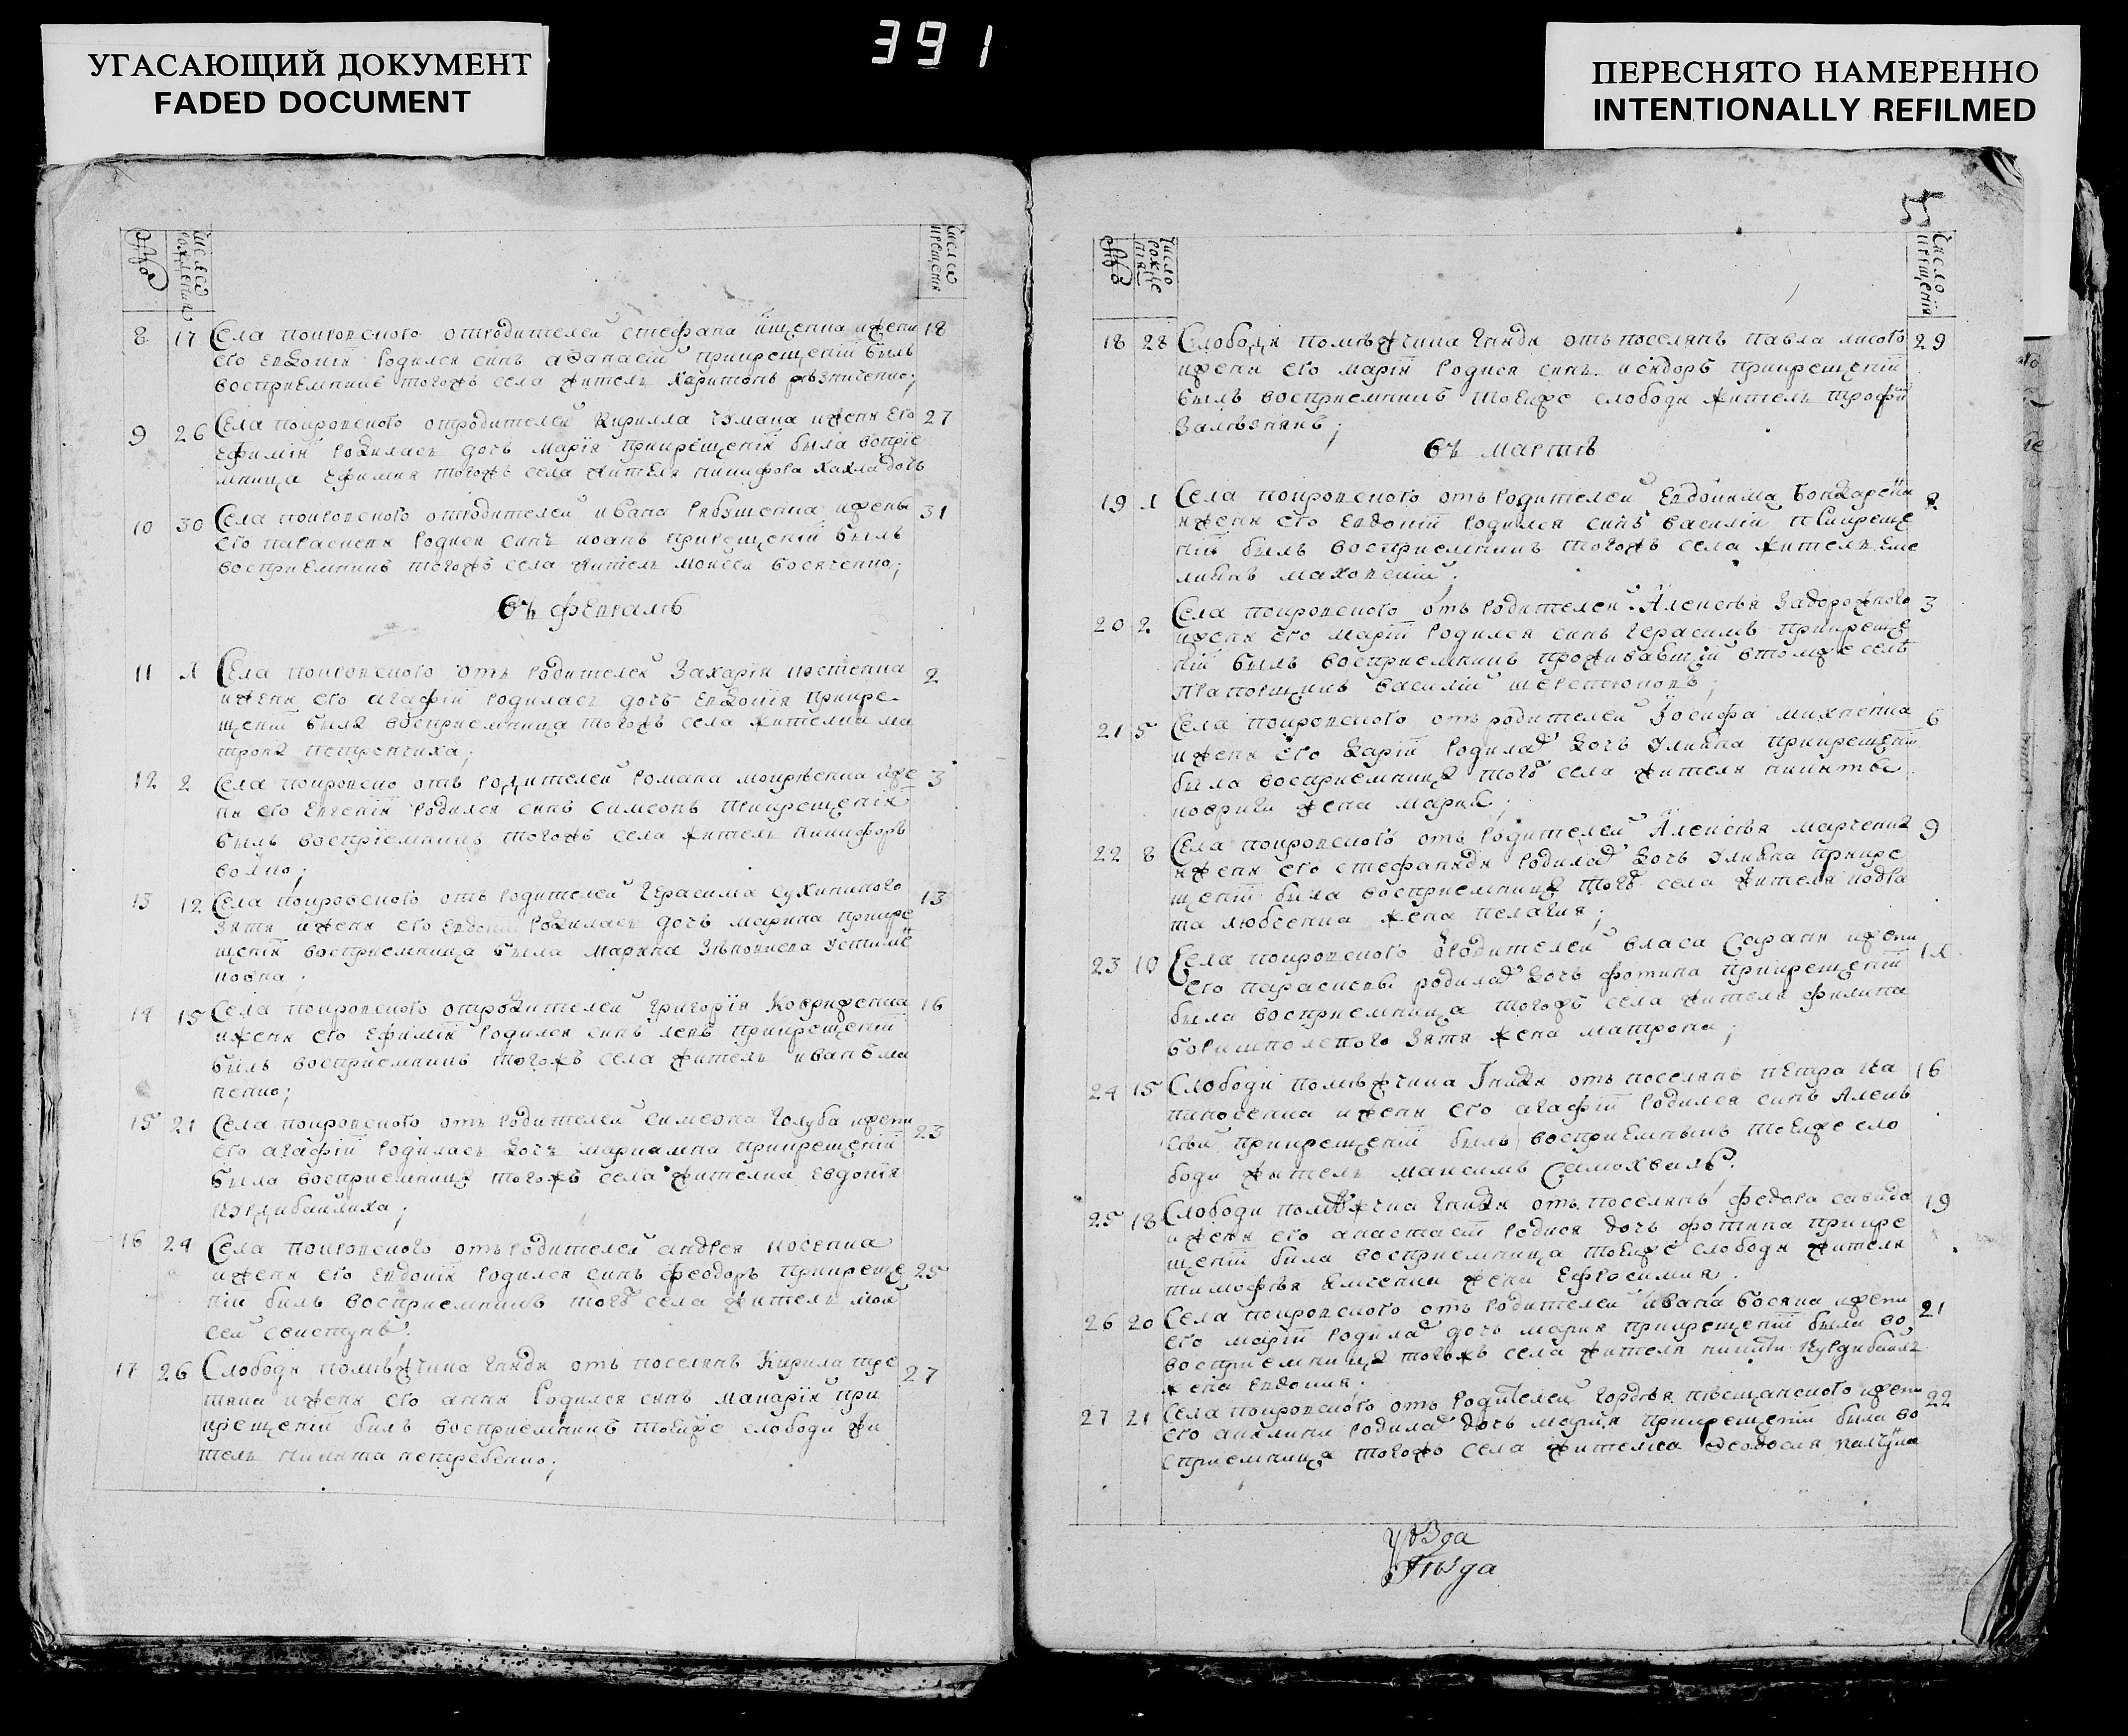 УГАСАЮЩИЙ ДОКУМЕНТ
FADED DOCUMENT
391
ПЕРЕСНЯТО НАМЕРЕННО
INTENTIONALLY REFILMED
55
8 17 Села покровского отродителей стефана ищенка ижени 18
его евдокiи родился синъ афанасiй прикрещенiй былъ
восприемникъ тогожъ села житель харитонъ резниченко;
9 26 Села покровского отродителей Кирилла чумака ижени его 27
Ефимiи родилась дочь марiя прикрещенiи была воспрiе
мница ефимия тогожъ села жителя никифора хахла дочь
10 30 Села покровского отродителей ивана рябушенка ижены 31
его параскеви родися синъ иоанъ прикрещенiй былъ
восприемникъ тогожъ села житель моисей
въ февралѣ
11 1 Села покровского отъ родителей Захарiя костенка 2
ижени его агафiй родилась дочь евдокiя прикре
щенiй была восприемница тогожъ села жителка ма
трона
12 2 Села покровско отъ родителей романа мокрѣенка иже 3
ни его евгенiи родился синъ симеонъ прикрещенiи
былъ воспрiемникъ тогожъ села житель никифоръ
вовко;
13 12 Села покровского отъ родителей герасима сухининого 13
зятя ижени его родилась дочь марина прикре
щенiи восприемница была марина устиме
нкова;
14 15 Села покровского отродителей григорiя ковриженка 16
ижени его Ефимiи родился синъ левъ прикрещенiй
былъ восприемникъ тогожъ села житель иван
ненко;
15 21 Села покровского отъ родителей симеона голуба ижени 23
его агафiй родилась дочь мариамна прикрещенiй
была восприемница тогожъ села жителка евдокiя
курдибаилиха;
16 24 Села покровского отъ родителей андрея косенка
ижени его евдокiи родился синъ феодоръ прикреще 25
нiи билъ восприемникъ тогожъ села житель мои
сей свистунъ.
17 26 Слободи помѣжчика гнѣди отъ поселянъ Кирила тре 27
тяка ижени его анни родился синъ макарiй при
крещенiй билъ восприемникъ тоейже слободи жи
тель никита нетребенко;
18 28 Слободи помѣжчика гнѣди отъ поселянъ павла лисого 29
ижени его марiи родися синъ исидоръ прикрещенiй
былъ восприемникъ тоейже слободи житель трофи

въ мартѣ
19 1 Села покровского отъ родителей Евдокима бондаренка 2
ижени его евдокiй родился синъ василiй прикреще
нiй былъ восприемникъ тогожъ села житель еме
лиянъ маховскiй;
20 2 Села покровского отъ родителей Алексѣя задорожного 3
ижени его марiй родился синъ герасимъ прикреще
нiй былъ восприемникъ проживавшiй втомже селѣ
прапорщикъ василiй
21 5 Села покровского отъ родителей Iосифа михненка 6
ижени его дарiй родилась дочь улияна прикрещенiи
была восприемница тогожъ села жителя никиты
ковриги жена мария;
22 8 Села покровского отъ родителей Алексѣя марченка 9
ижени его стефаниди родилась дочь улияна прикре
щенiй была восприемница тогожъ села жителя кодра
та любченка жена пелагия;
23 10 Села покровского отродителей власа Сарани ижени 11
его параскевы родилась дочь фотина прикрещенiй
была восприемница тогожъ села жителя филипа
зятя жена матрона;
24 15 Слободи помѣжчика Гнѣди отъ поселянъ петра ка 16
паносенка ижени его агафiй родился синъ Алекъ
сѣй прикрещенiй былъ восприемникъ тоейже сло
боди житель максимъ Самохвалъ.
25 18 Слободи помѣжчика гнѣди отъ поселянъ федора савида 19
ижени его анастасiй родися дочь фотина прикре
щенiй била восприемница тоейже слободи жителя
тимофѣя жена ефросимия.
26 20 Села покровского отъ родителей ивана босяка ижени 21
его марiй родилась дочь мария прикрещенiй была во
восприемница тогожъ села жителя никити курдибаила
жена евдокия.
27 21 Села покровского отъ родителей гордѣя пѣщанского ижени 22
его акилини родилась дочь мария прикрещенiй была во
сприемница тогожъ села жителка феодосия
уѣзда